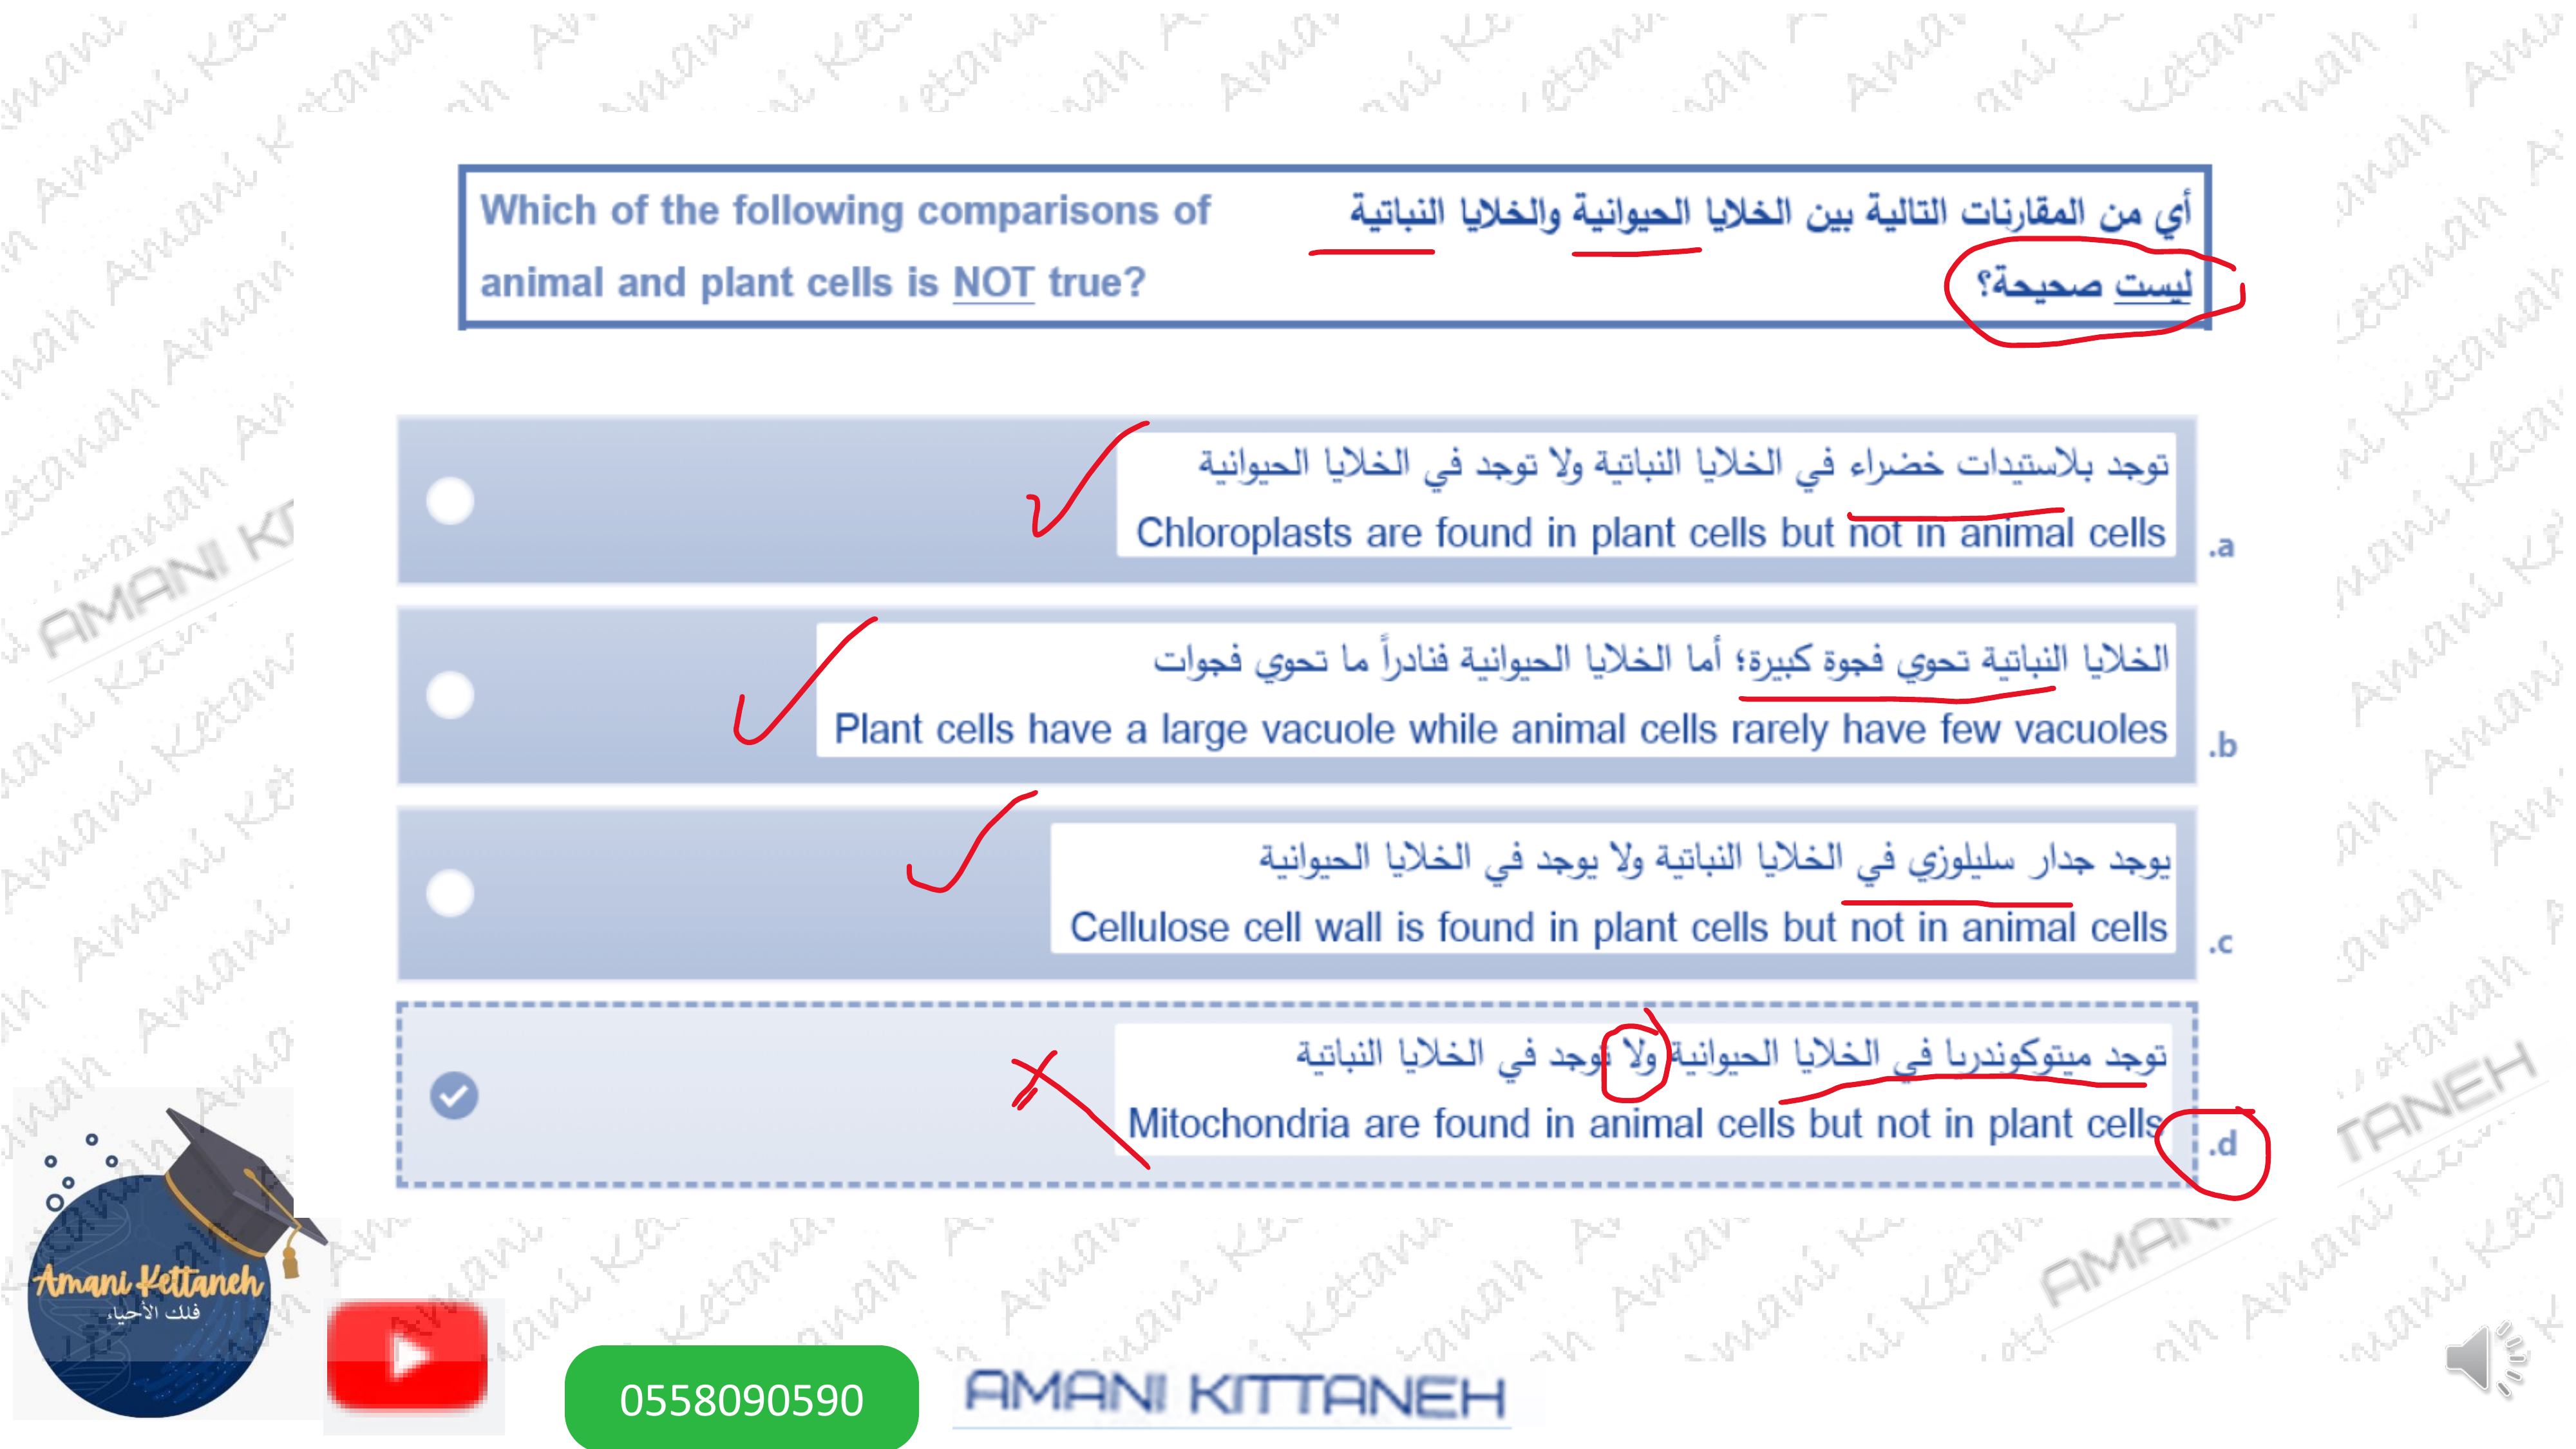 Which of the following comparisons of
animal and plant cells is NOT true?
أي من المقارنات التالية بين الخلايا الحيوانية والخلايا النباتية
ليست صحيحة؟
توجد بلاستيدات خضراء في الخلايا النباتية ولا توجد في الخلايا الحيوانية
Chloroplasts are found in plant cells but not in animal cells
.a
الخلايا النباتية تحوي فجوة كبيرة؛ أما الخلايا الحيوانية فنادراً ما تحوي فجوات
Plant cells have a large vacuole while animal cells rarely have few vacuoles
.b
يوجد جدار سليلوزي في الخلايا النباتية ولا يوجد في الخلايا الحيوانية
Cellulose cell wall is found in plant cells but not in animal cells
.c
توجد ميتوكوندريا في الخلايا الحيوانية ولا توجد في الخلايا النباتية
Mitochondria are found in animal cells but not in plant cells
.d
Amani Kettaneh
فلك الأحياء
0558090590
AMANI KITTANEH